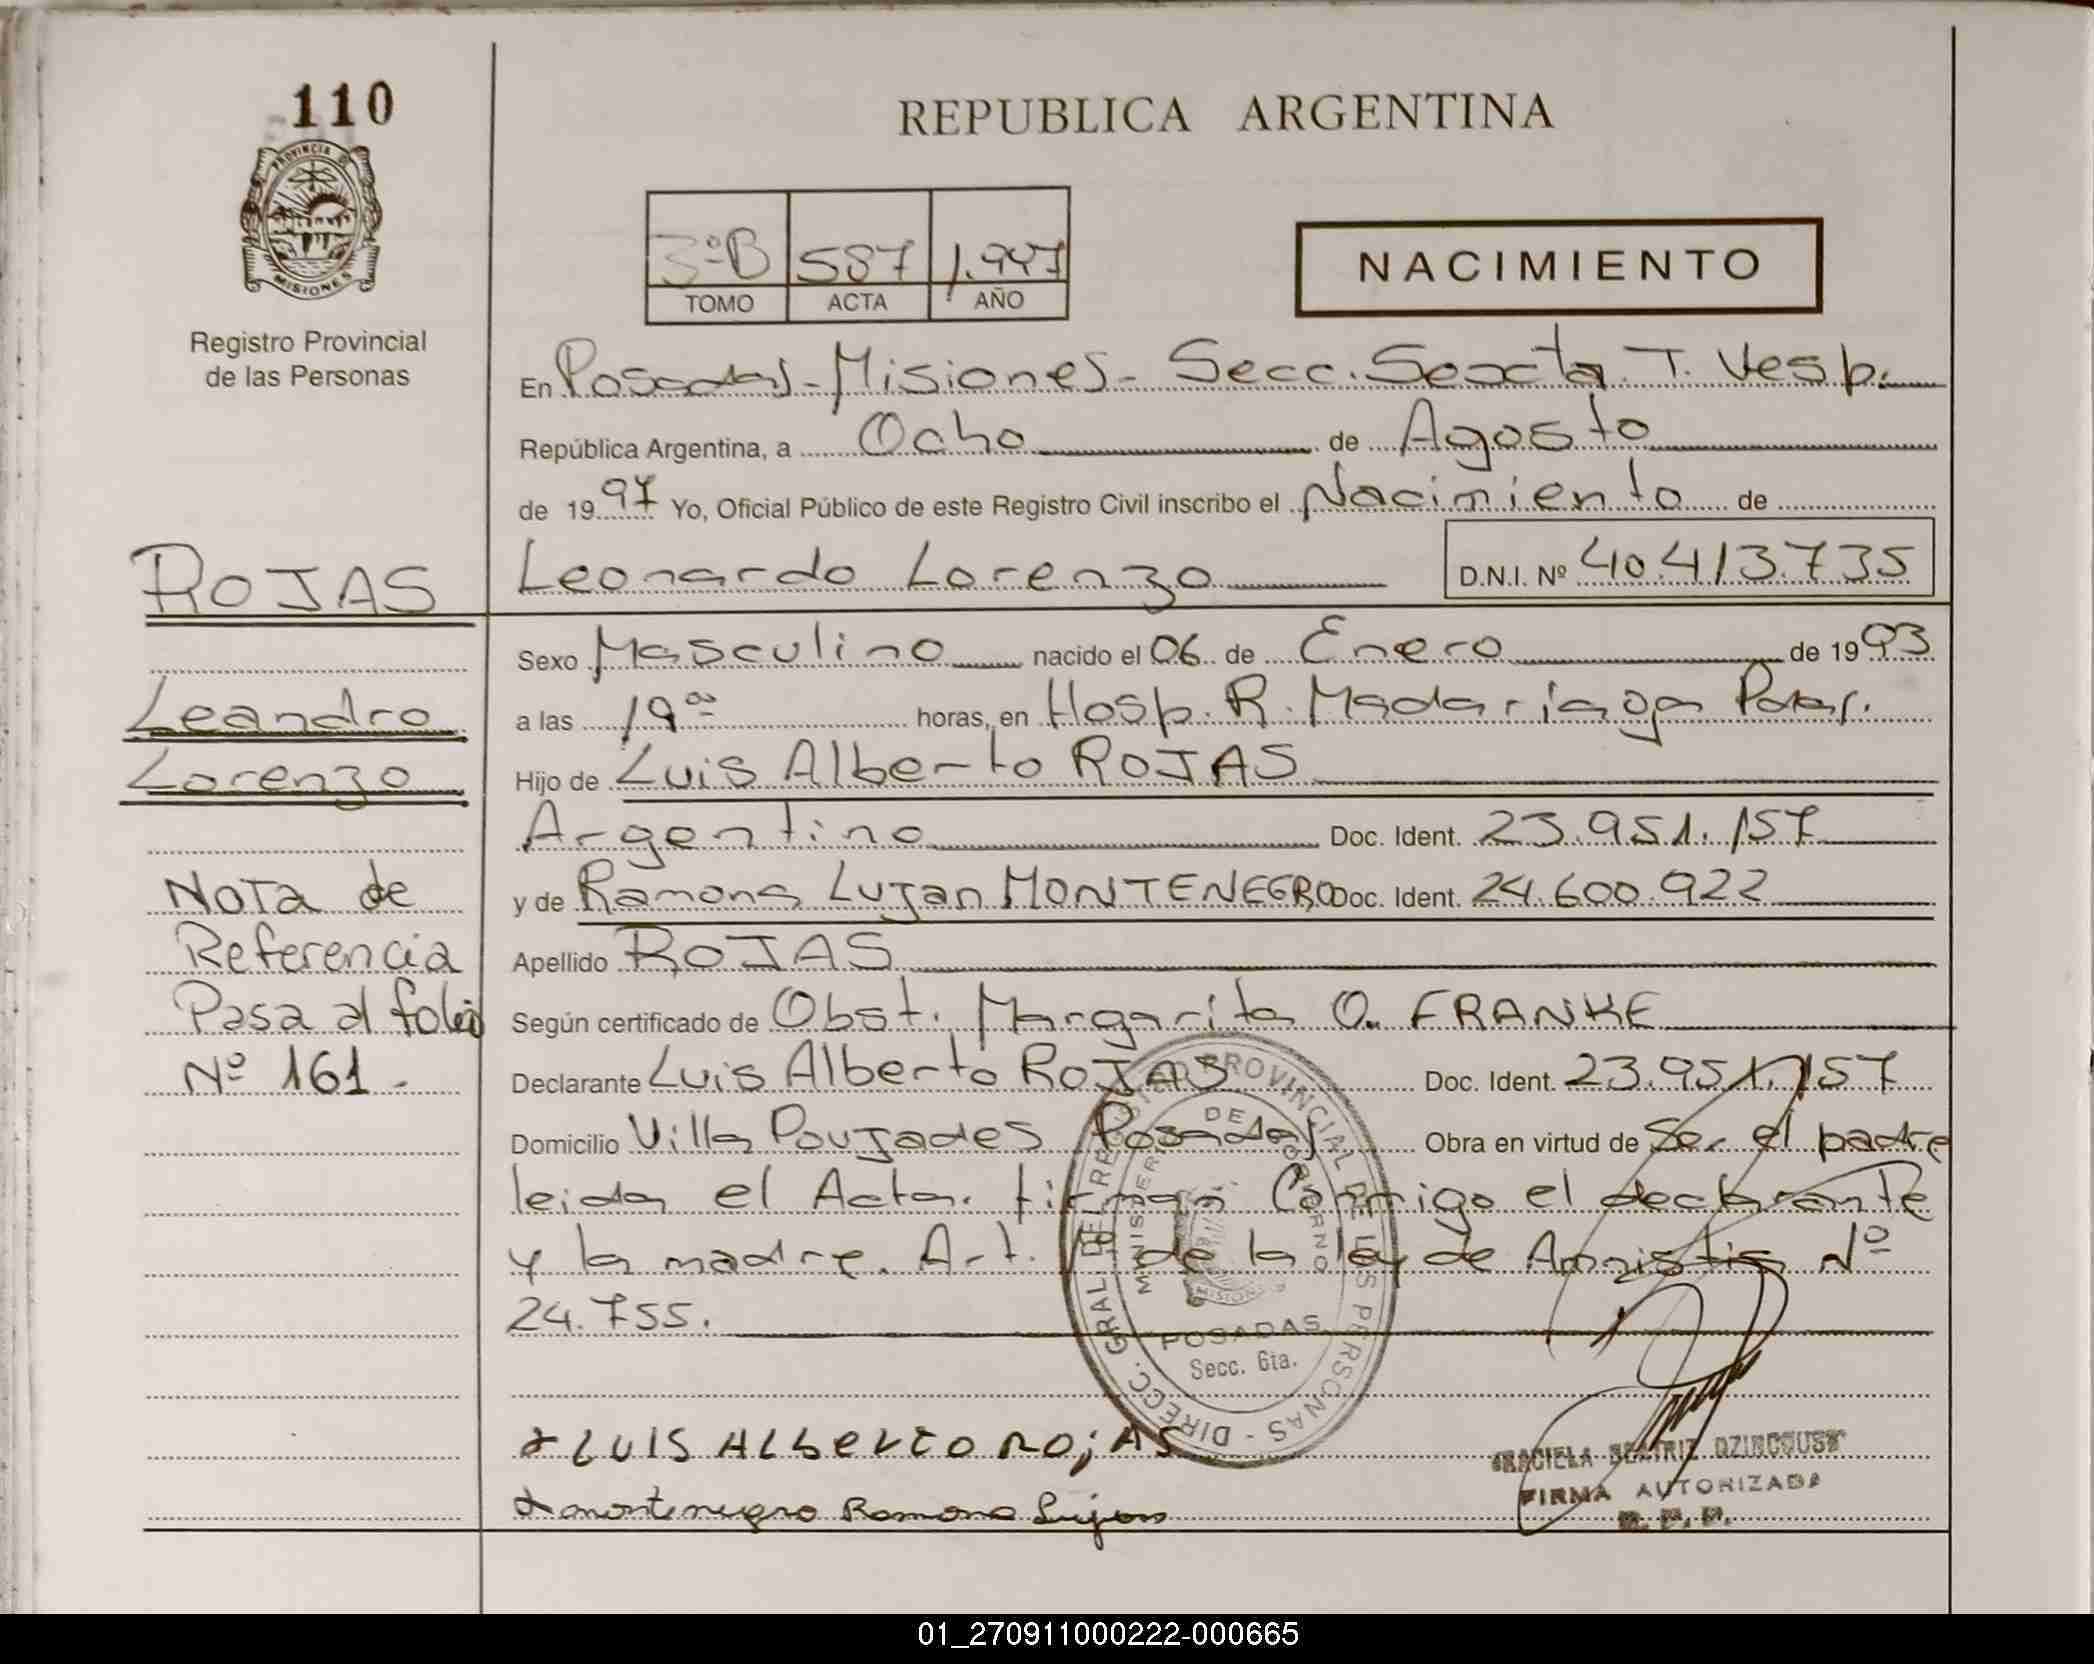 110
REPUBLICA ARGENTINA
PROVINCIA DE
MISIONES
Registro Provincial
de las Personas
3ºB 587 1.997
TOMO ACTA AÑO
NACIMIENTO
En Posadas - Misiones - Secc. Sexta. T. Vesp.
República Argentina, a Ocho de Agosto
de 1997 Yo, Oficial Público de este Registro Civil inscribo el Nacimiento de
Leonardo Lorenzo D.N.I. Nº 40.413.735
ROJAS
Leandro
Lorenzo
Nota de
Referencia
Pasa al folio
Nº 161.
Sexo Masculino nacido el 06 de Enero de 1993
a las 19⁰⁰ horas, en Hosp. R. Madariaga Pdas.
Hijo de Luis Alberto ROJAS
Argentino Doc. Ident. 23.951.157
y de Ramona Lujan MONTENEGRO Doc. Ident. 24.600.922
Apellido ROJAS
Según certificado de Obst. Margarita O. FRANKE
Declarante Luis Alberto ROJAS Doc. Ident. 23.951.157
Domicilio Villa Poujades Posadas Obra en virtud de Ser el padre
leida el Acta. firman Conmigo el declarante
y la madre. Art. de la ley de Amnistia Nº
24.755.
DIRECC. GRAL DEL REGISTRO PROVINCIAL DE LAS PERSONAS
MINISTERIO DE GOBIERNO
MISIONES
POSADAS
Secc. 6ta.
LUIS ALberto ROjAS
montenegro Ramona Lujan
GRACIELA BEATRIZ
FIRMA AUTORIZADA
R. P. P.
01_270911000222-000665